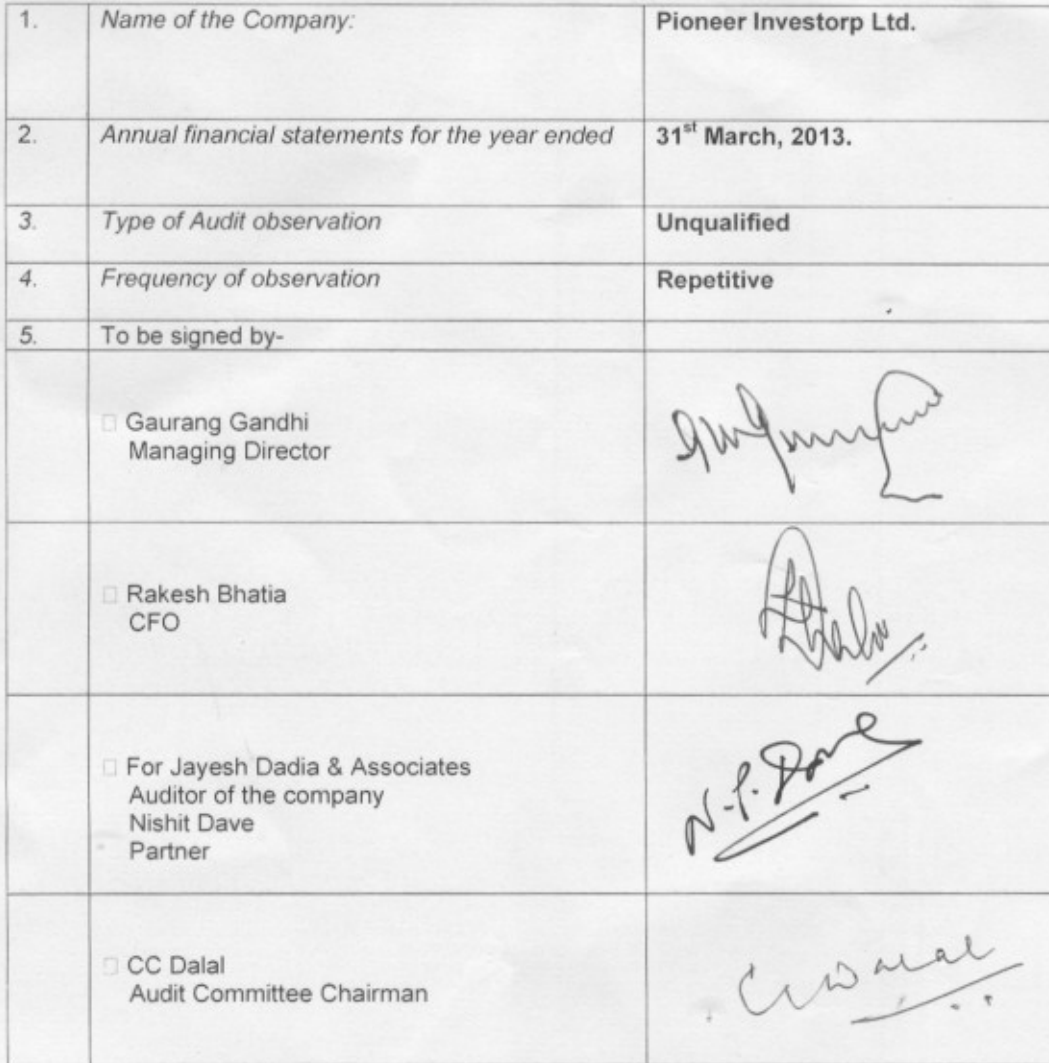 1. Name of the Company: Pioneer Investorp Ltd.
2. Annual financial statements for the year ended 31st March, 2013.
3. Type of Audit observation Unqualified
4. Frequency of observation Repetitive
5. To be signed by-
Gaurang Gandhi
Managing Director
Rakesh Bhatia
CFO
For Jayesh Dadia & Associates
Auditor of the company
Nishit Dave
Partner
N.P. Dave
CC Dalal
Audit Committee Chairman